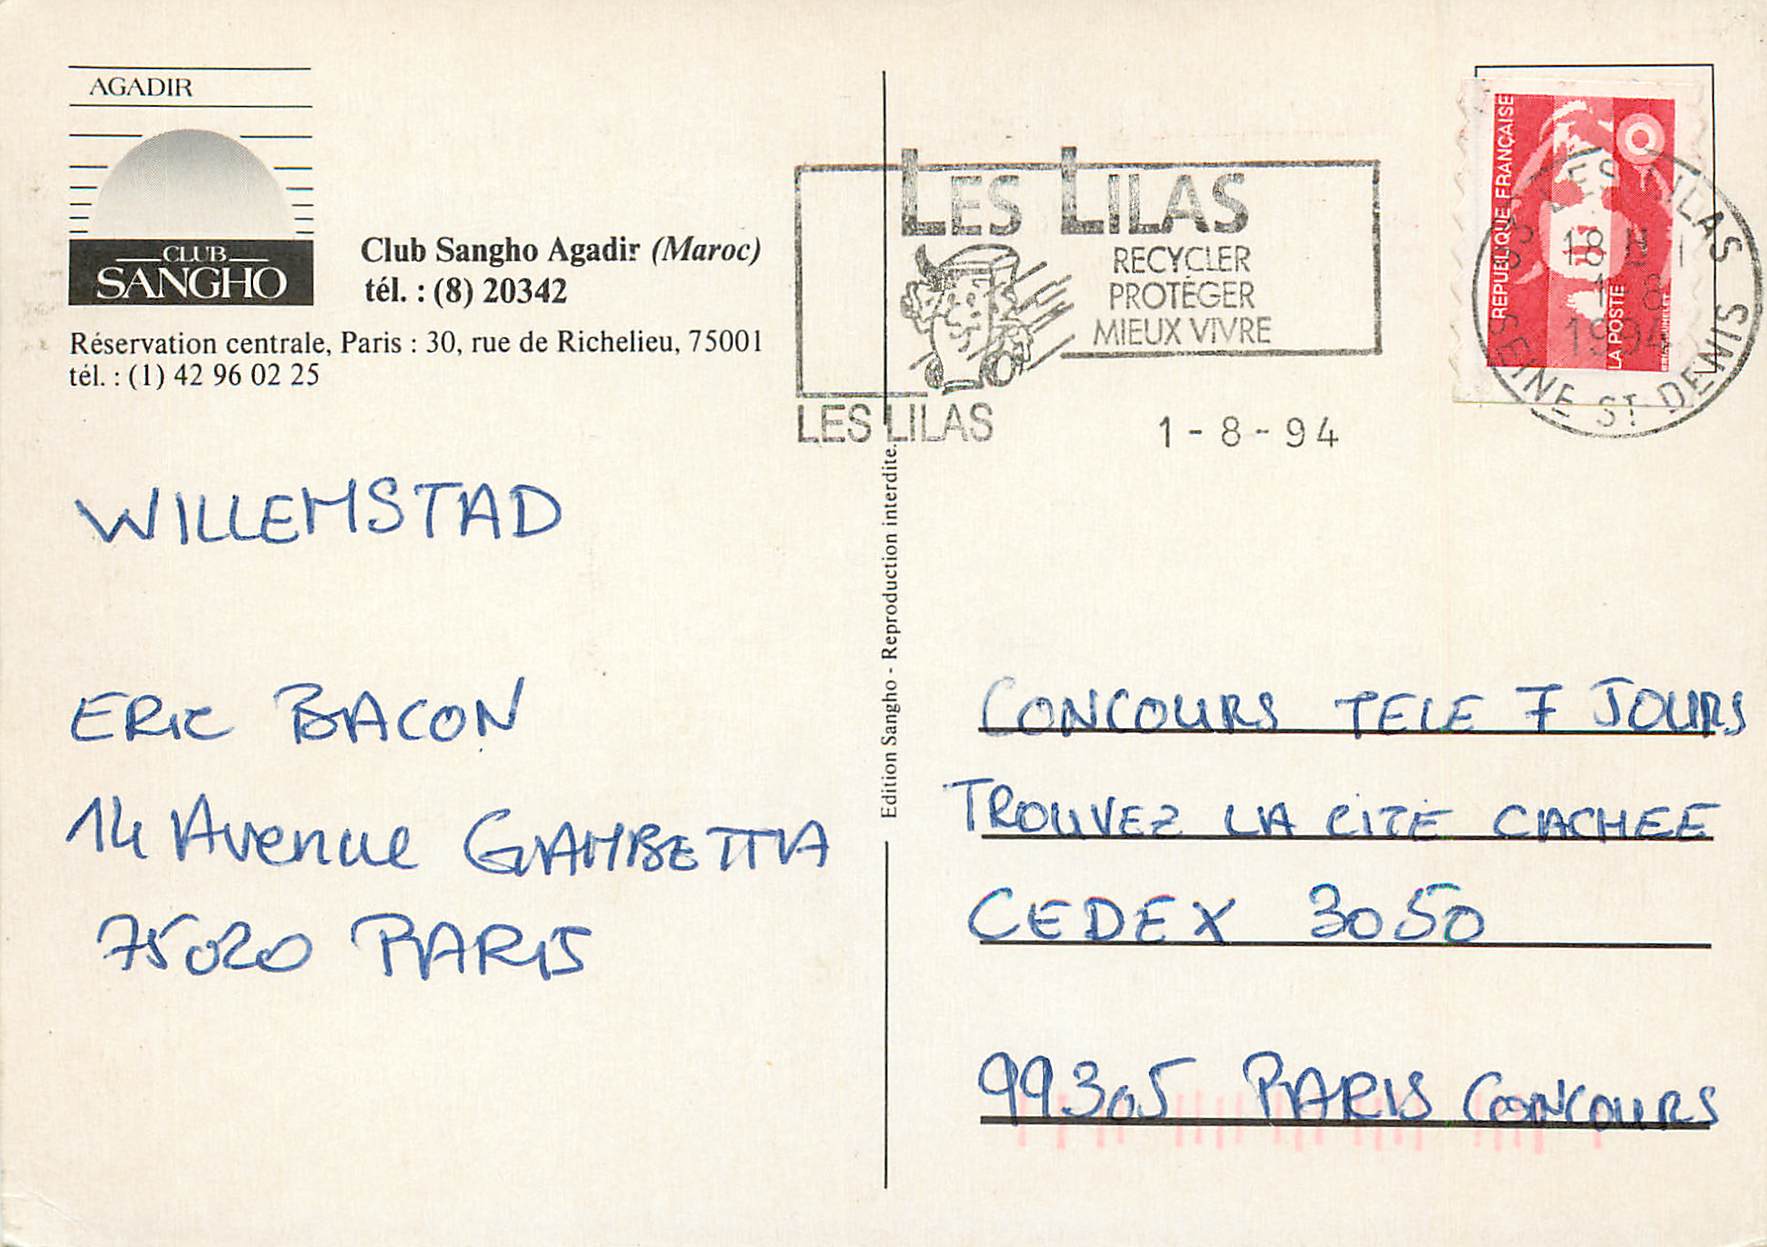 AGADIR
CLUB
SANGHO
Club Sangho Agadir (Maroc)
tél. : (8) 20342
Réservation centrale, Paris : 30, rue de Richelieu, 75001
tél. : (1) 42 96 02 25
WILLEMSTAD
ERIC BACON
14 Avenue GAMBETTA
75020 PARIS
Edition Sangho - Reproduction interdite.
LES LILAS
RECYCLER
PROTÉGER
MIEUX VIVRE
LES LILAS
1 - 8 - 94
RÉPUBLIQUE FRANÇAISE
LA POSTE
LES LILAS
18 H
1 8
1994
SEINE ST DENIS
CONCOURS TELE 7 JOURS
TROUVEZ LA CITE CACHEE
CEDEX 3050
99305 PARIS CONCOURS